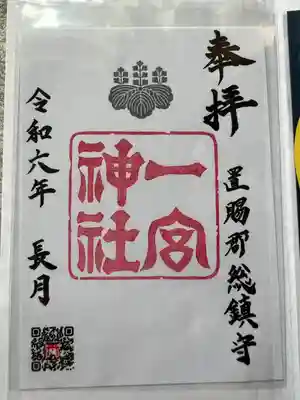 奉拝
置賜郡総鎮守
一宮
神社
令和六年 長月